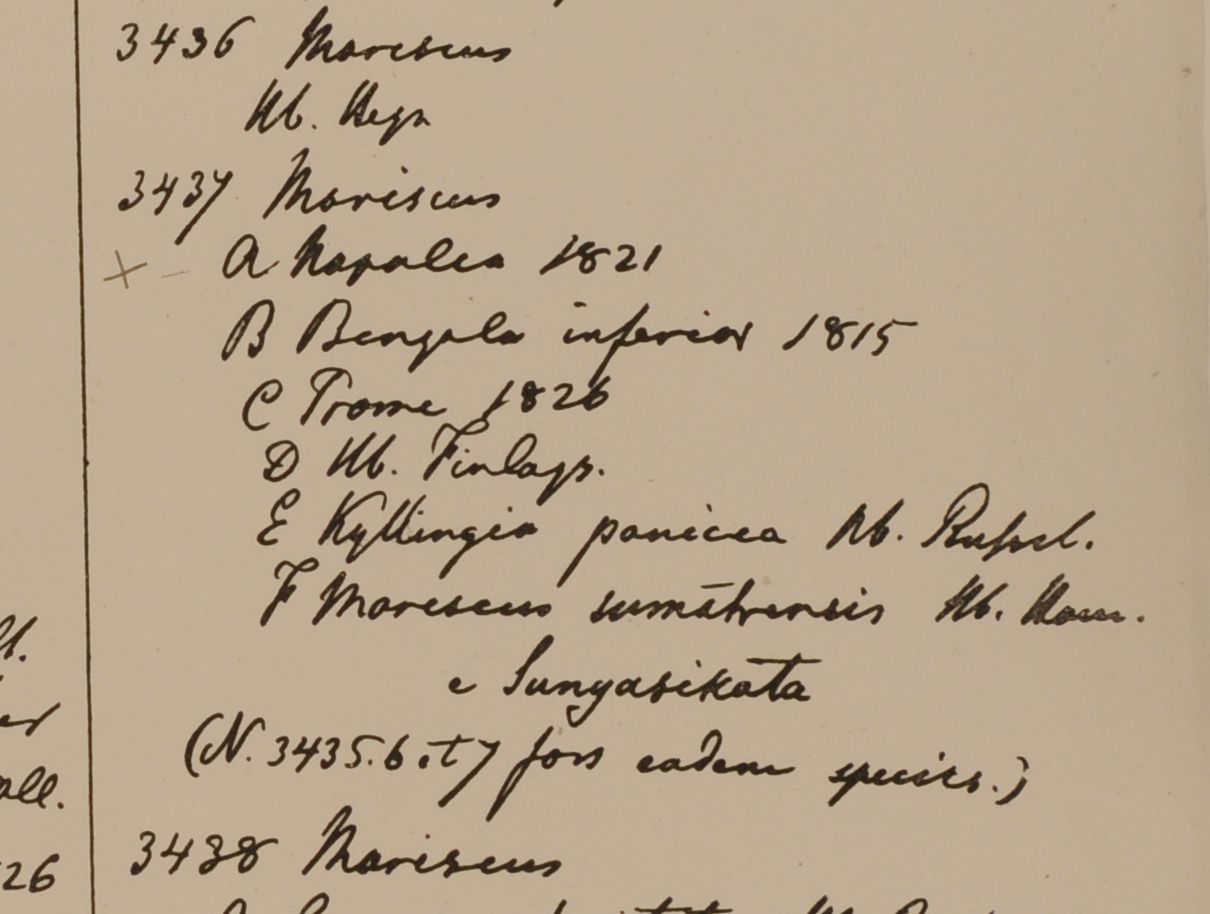 3436 Mariscus
Hb. Heyn
3437 Mariscus
A Napalea 1821
B Bengala inferior 1815
C Prome 1826
D Hb. Finlays.
E Kyllingia panicea Hb. Russel.
F Mariscus sumatrensis Hb. Ham.
e Sunyasikata
(N. 3435.6.et 7 fors eadem species.)
3438 Mariscus
all.
26